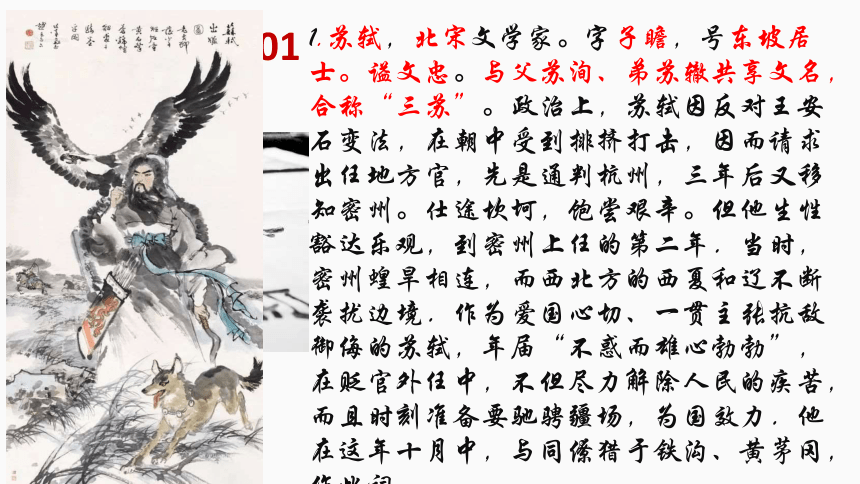 01
1.苏轼，北宋文学家。字子瞻，号东坡居
士。谥文忠。与父苏洵、弟苏辙共享文名，
合称“三苏”。政治上，苏轼因反对王安
石变法，在朝中受到排挤打击，因而请求
出任地方官，先是通判杭州，三年后又移
知密州。仕途坎坷，饱尝艰辛。但他生性
豁达乐观，到密州上任的第二年．当时，
密州蝗旱相连，而西北方的西夏和辽不断
袭扰边境．作为爱国心切、一贯主张抗敌
御侮的苏轼，年届“不惑而雄心勃勃”，
在贬官外任中，不但尽力解除人民的疾苦，
而且时刻准备要驰骋疆场，为国效力．他
在这年十月中，与同僚猎于铁沟、黄茅冈，
作此词